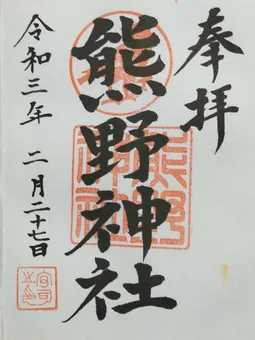 奉拝
熊野神社
令和三年 二月二十七日